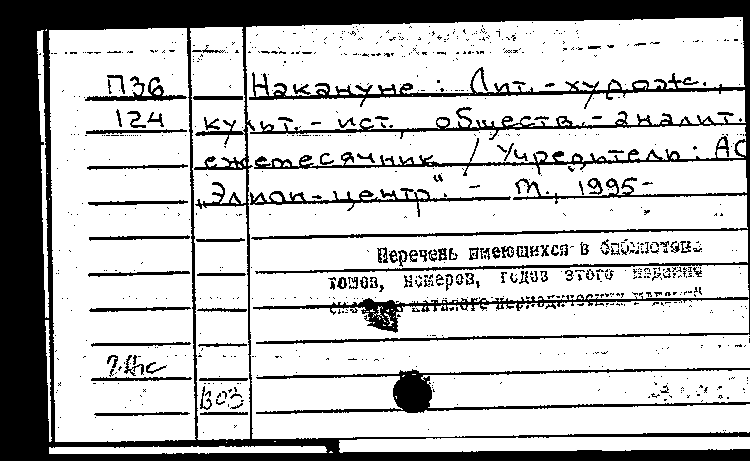 П36 Накануне : Лит.-худож.,
124 культ.-ист., обществ.-аналит.
ежемесячник / Учредитель: АО
„Элион-центр". - М., 1995-
Перечень имеющихся в библиотеке
томов, номеров, годов этого издания
смотри в каталоге периодических изданий
В03